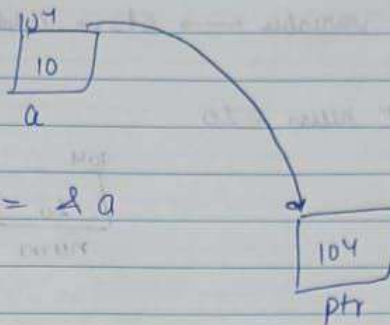 104
10
a
= & a
104
ptr